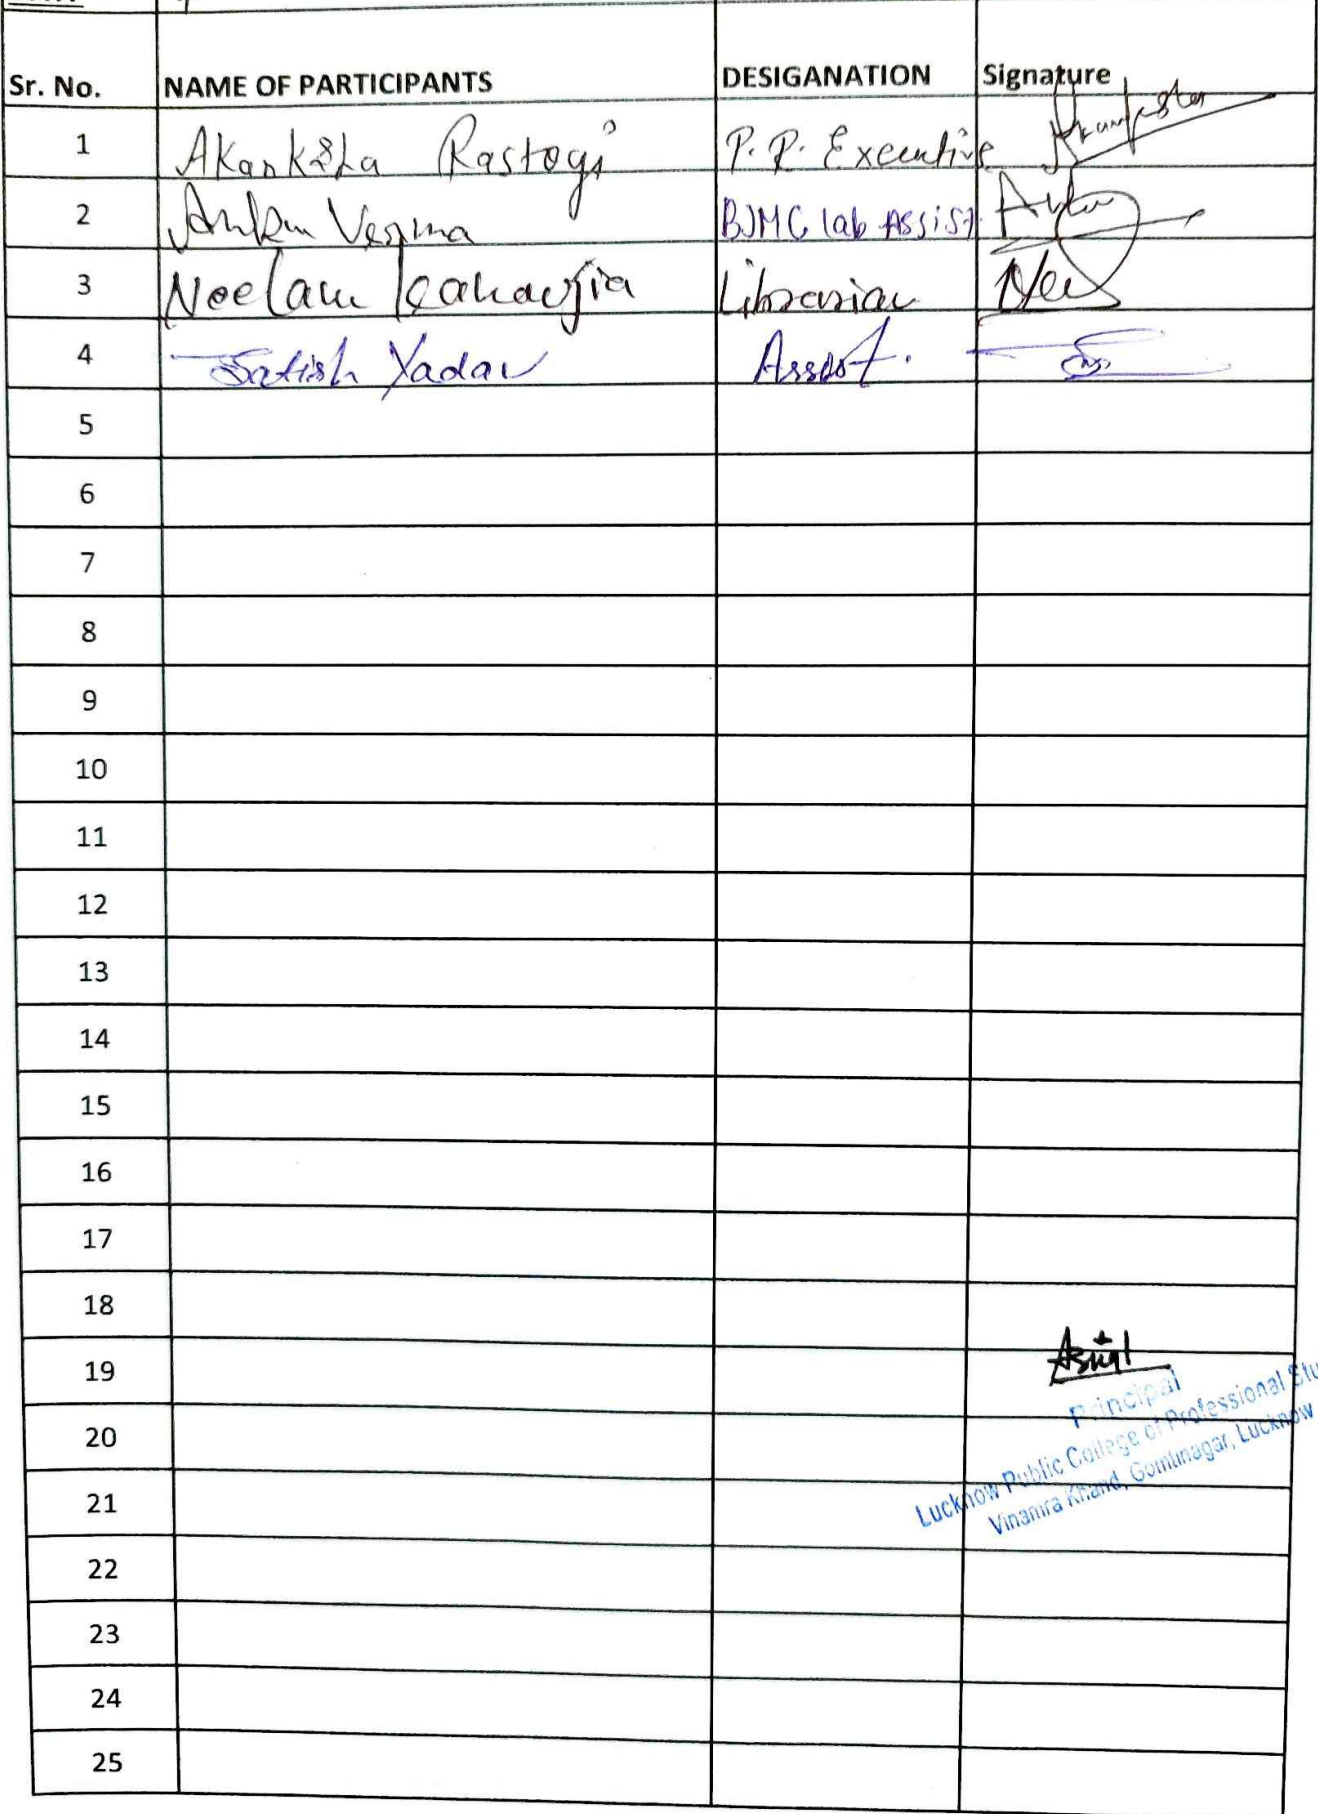 Sr. No. NAME OF PARTICIPANTS DESIGANATION Signature
1 Akanksha Rastogi P.R. Executive
2 Verma BJMC lab Assist.
3 Neelam Librarian
4 Satish Yadav Assist.
5
6
7
8
9
10
11
12
13
14
15
16
17
18
19
Principal
20
Lucknow Public College of Professional Stu
21
Vinamra Khand, Gomtinagar, Lucknow
22
23
24
25